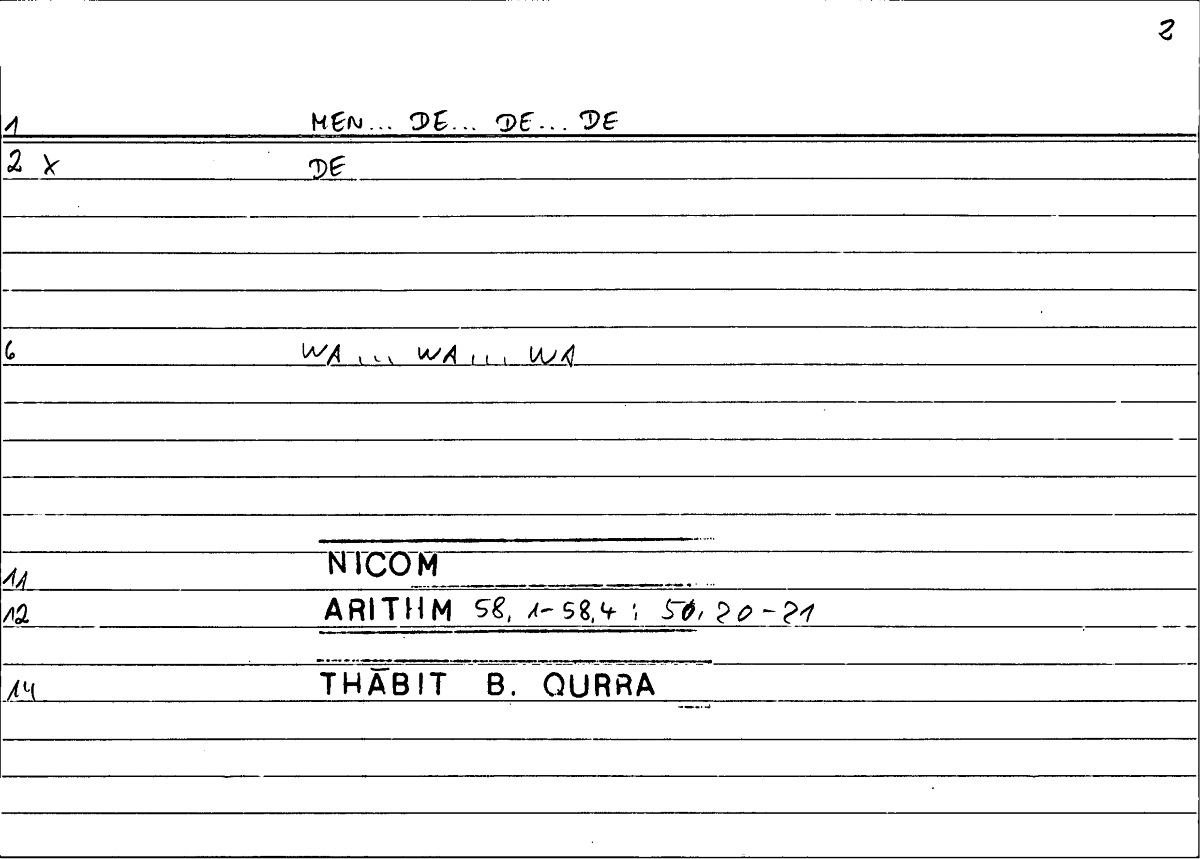 2
1 MEN... DE... DE... DE
2 X DE
6 WA ... WA ... WA
11 NICOM
12 ARITHM 58, 1-58,4 ; 50, 20-21
14 THĀBIT B. QURRA